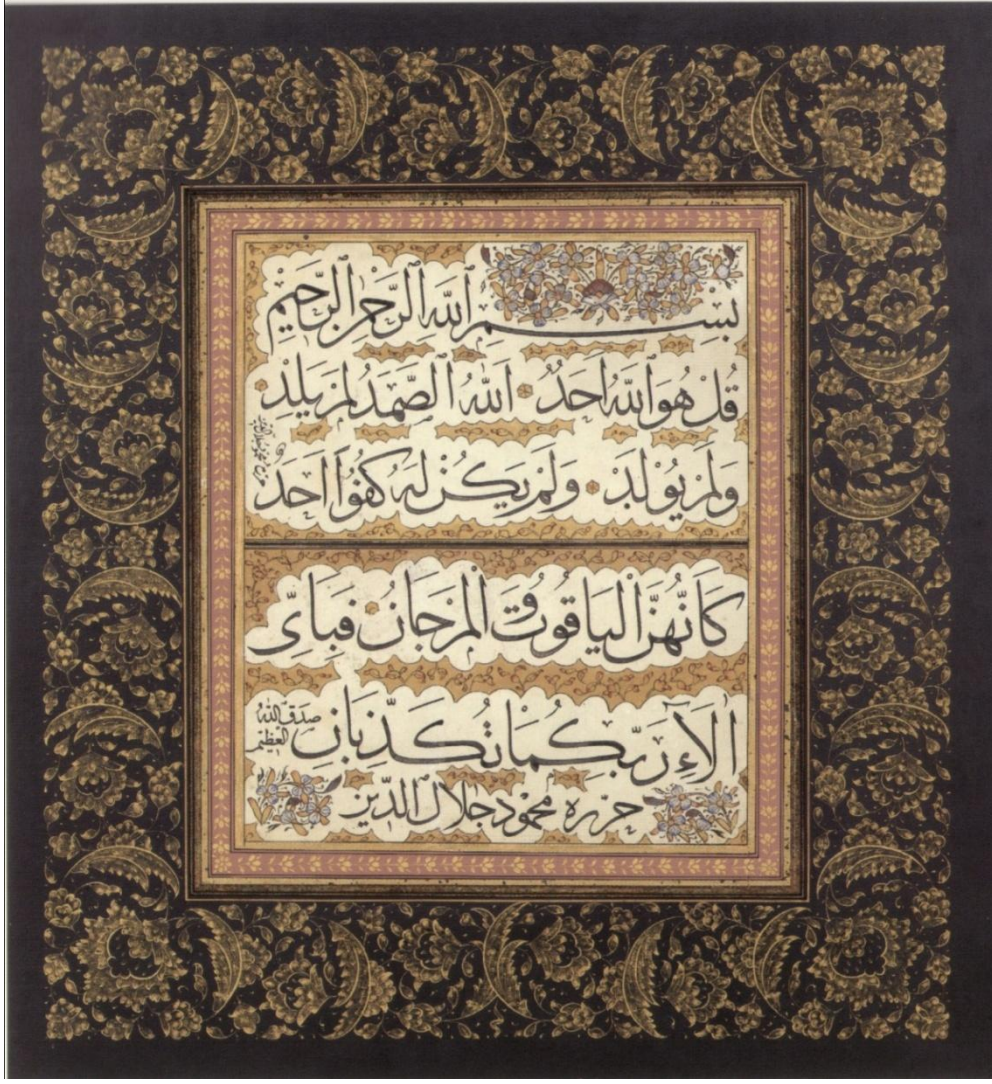 بسم الله الرحمن الرحيم
قل هو الله احد الله الصمد لم يلد
ولم يولد ولم يكن له كفوا احد
كأنهن الياقوت والمرجان فباى
الآء ربكما تكذبان
صدق الله
العظيم
حرره محمود جلال الدين